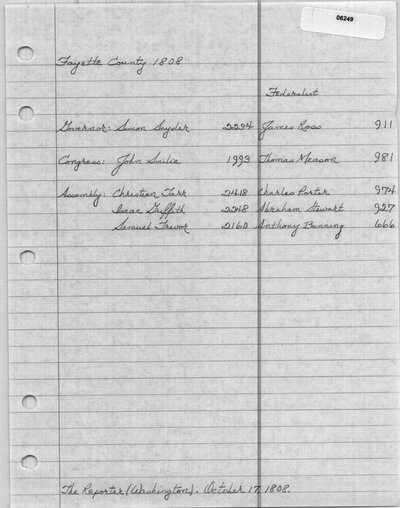 06249
Fayette County 1808
Federalist
Governor: Simon Snyder 2234 James Ross 911
Congress: John Smilie 1993 Thomas Meason 981
Assembly: Christian Tarr 2418 Charles Porter 974
Isaac Griffith 2248 Abraham Stewart 927
Samuel Trevor 2160 Anthony Banning 666
The Reporter (Washington). October 17, 1808.